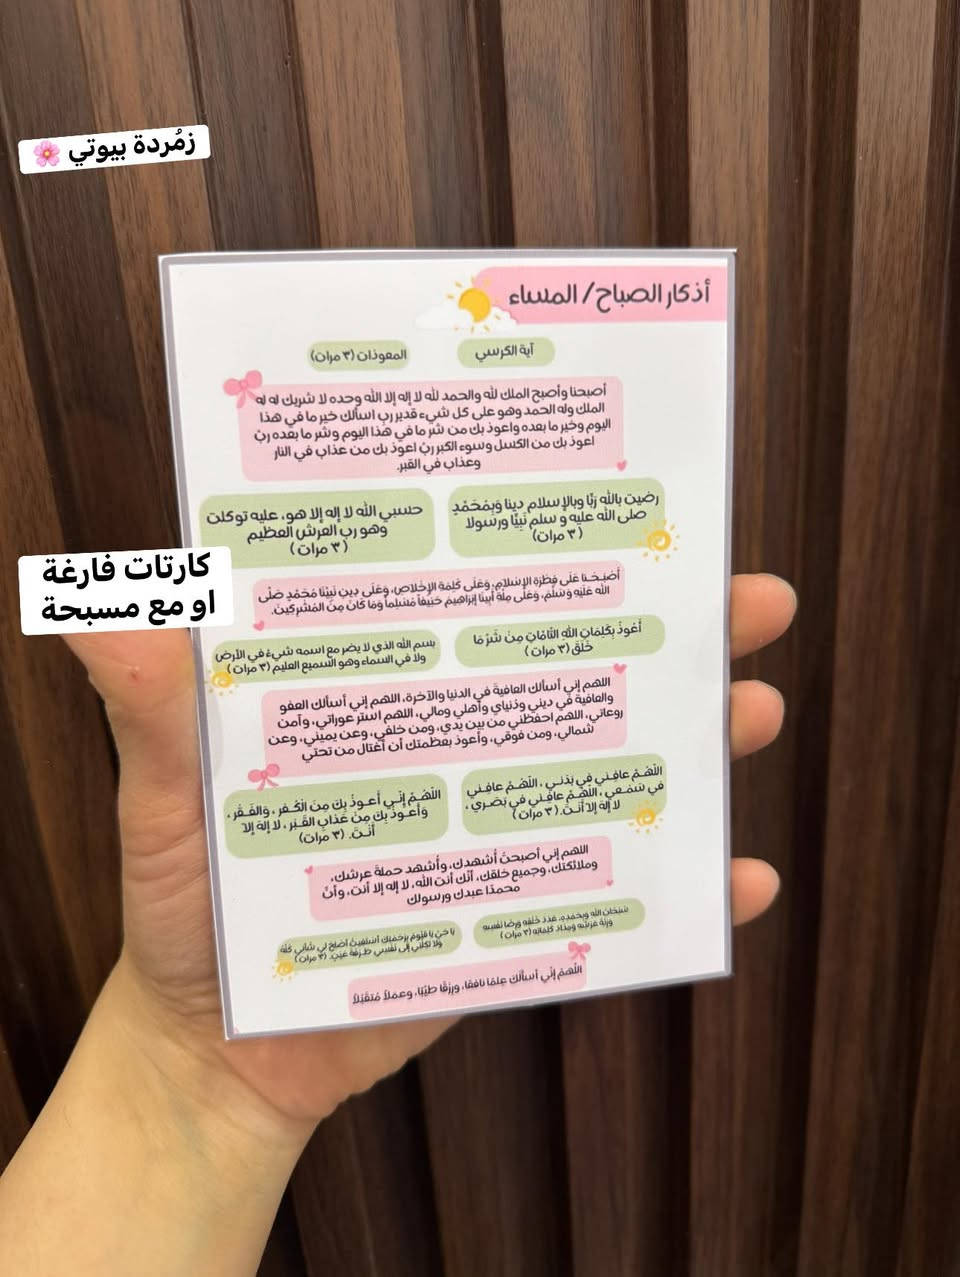 زمُردة بيوتي 🌸
أذكار الصباح/ المساء
آية الكرسي
المعوذات (٣ مرات)
أصبحنا وأصبح الملك لله والحمد لله لا إله إلا الله وحده لا شريك له له
الملك وله الحمد وهو على كل شيء قدير رب اسألك خير ما في هذا
اليوم وخير ما بعده واعوذ بك من شر ما في هذا اليوم وشر ما بعده ربّ
اعوذ بك من الكسل وسوء الكبر ربّ اعوذ بك من عذاب في النار
وعذاب في القبر.
رضيت بالله رَبًا وبالإسلام دينا وَبِمُحَمّدٍ
صلى الله عليه و سلم نَبِيًّا ورسولا
(٣ مرات)
حسبي الله لا إله إلا هو، عليه توكلت
وهو رب العرش العظيم
(٣ مرات)
كارتات فارغة
او مع مسبحة
أَصْبَحْنا عَلَى فِطْرَةِ الإسلامِ، وَعَلَى كَلِمَةِ الإِخْلاصِ، وَعَلَى دِينِ نَبِيِّنَا مُحَمَّدٍ صَلَّى
الله عَلَيْهِ وَسَلَّمَ، وَعَلَى مِلَّةِ أَبِينَا إِبْرَاهِيمَ حَنِيفاً مُسْلِماً وَمَا كَانَ مِنَ المُشْرِكِينَ.
أَعُوذُ بِكَلِمَاتِ اللَّهِ التَّامَّاتِ مِن شَرِّ مَا
خَلَقَ (٣ مرات)
بسم الله الذي لا يضر مع اسمه شيءٌ في الأرض
ولا في السماء وهو السميع العليم (٣ مرات)
اللهم إني أسألك العافية في الدنيا والآخرة، اللهم إني أسألك العفو
والعافية في ديني ودُنياي وأهلي ومالي، اللهم استر عوراتي، وآمن
روعاتي، اللهم احفظني من بين يدي، ومن خلفي، وعن يميني، وعن
شمالي، ومن فوقي، وأعوذ بعظمتك أن أغتال من تحتي
اللّهُـمَّ عافِـني في بَدَنـي ، اللّهُـمَّ عافِـني
في سَمْـعي ، اللّهُـمَّ عافِـني في بَصَـري ،
لا إلهَ إلاّ أَنْـتَ. (٣ مرات)
اللّهُـمَّ إِنّـي أَعـوذُ بِكَ مِنَ الْكُـفر ، وَالفَـقْر ،
وَأَعـوذُ بِكَ مِنْ عَذابِ القَـبْر ، لا إلهَ إلاّ
أَنْـتَ. (٣ مرات)
اللهم إني أصبحتُ أُشهدك، وأُشهد حملةَ عرشك،
وملائكتك، وجميع خلقك، أنّك أنت الله، لا إله إلا أنت، وأنَّ
محمدًا عبدك ورسولك
سُبْحَانَ اللهِ وبِحَمْدِهِ، عَدَدَ خَلْقِهِ وَرِضَا نَفْسِهِ
وَزِنَةَ عَرْشِهِ وَمِدَادَ كَلِمَاتِهِ (٣ مرات)
يَا حَيُّ يَا قَيُّومُ بِرَحْمَتِكَ أَسْتَغِيثُ أَصْلِحْ لِي شَأْنِي كُلَّهُ
وَلَا تَكِلْنِي إِلَى نَفْسِي طَـرْفَةَ عَيْنٍ. (٣ مرات)
اللَّهُمَّ إِنِّي أَسْأَلُكَ عِلمًا نافعًا، ورِزْقًا طَيِّبًا، وعَمَلاً مُتَقَبَّلاً